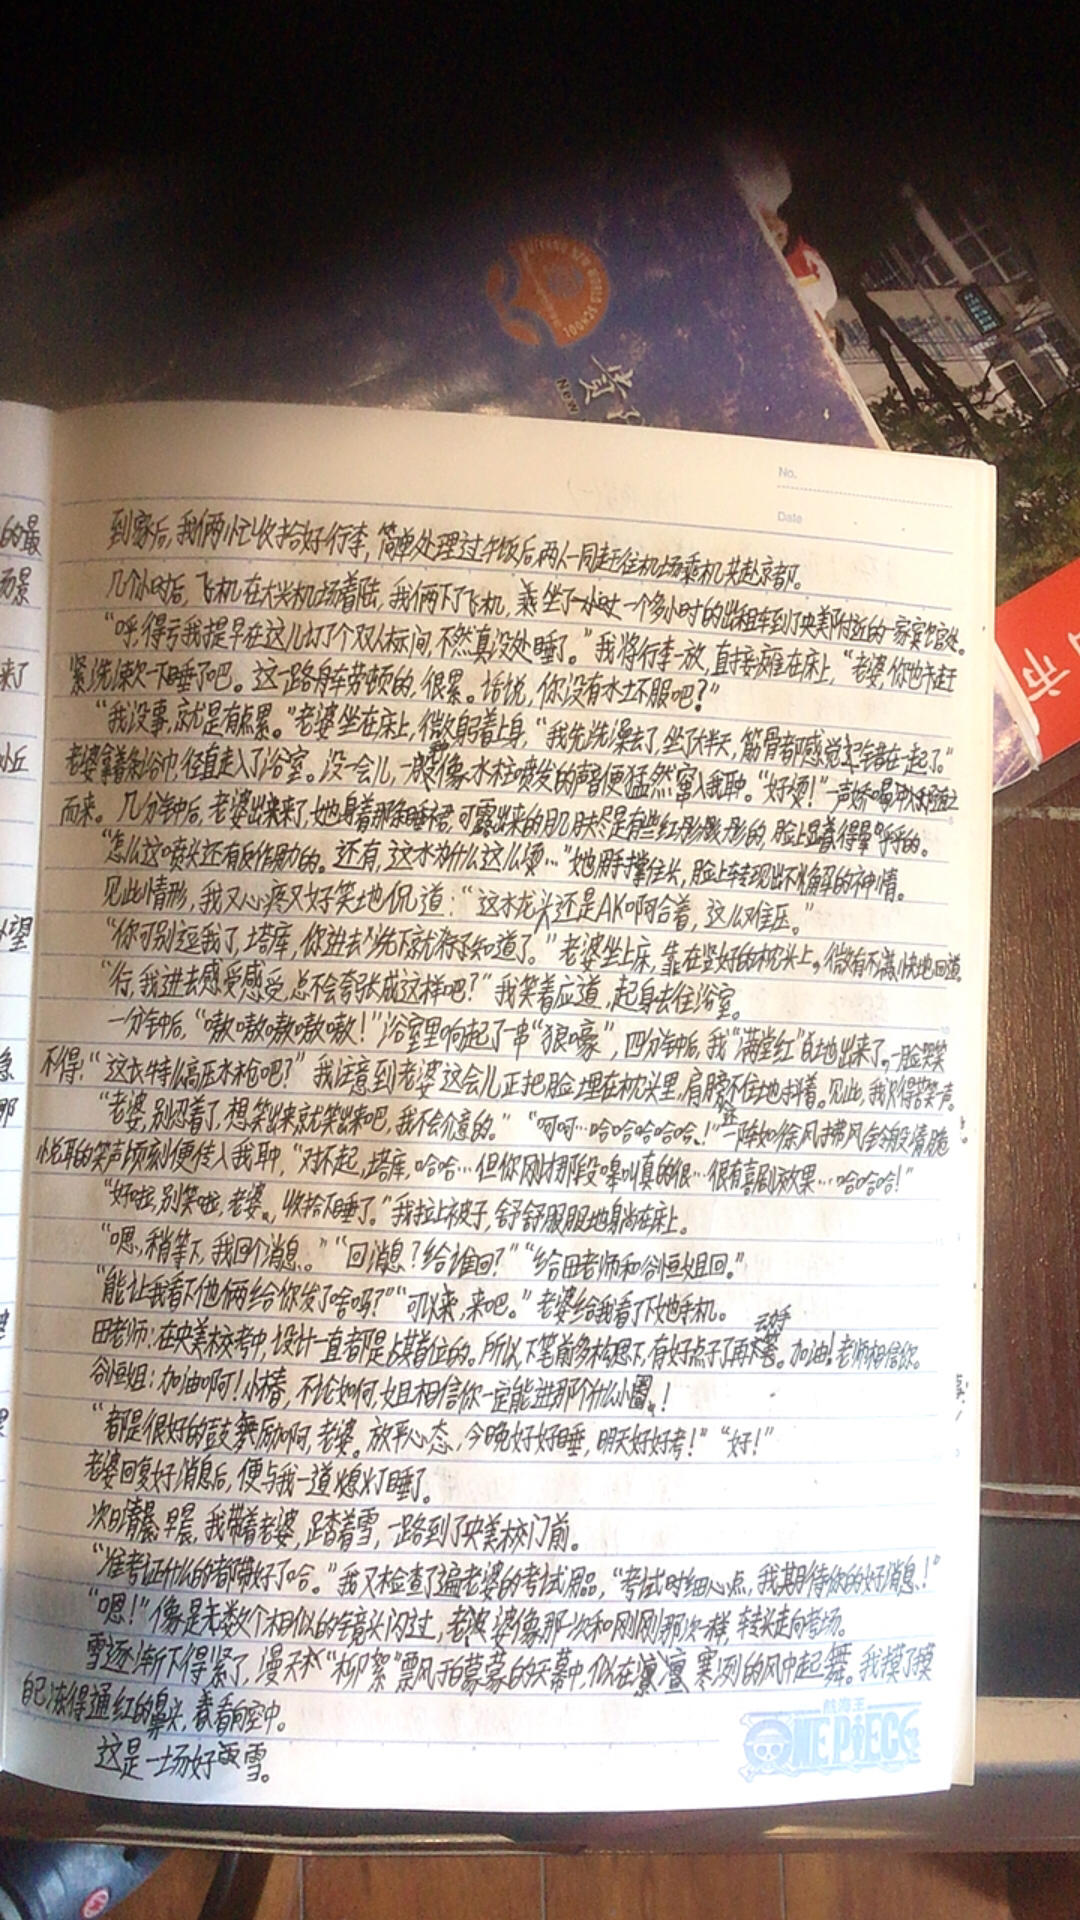 WORLD SCHOOL
New
市
No.
Date
到家后,我俩小忙收拾好行李,简单处理过午饭后,两人一同赶往机场乘机共赴京都。
几个小时后,飞机在大兴机场着陆,我俩下了飞机,乘坐了一个多小时的出租车到了央美附近的一家宾馆处。
“呼,得亏我提早在这儿订了个双人标间,不然真没处睡了。”我将行李一放,直接瘫在床上,“老婆,你也赶
紧洗漱一下睡了吧。这一路舟车劳顿的,很累。话说,你没有水土不服吧?”
“我没事,就是有点累。”老婆坐在床上,微躬着上身,“我先洗澡去了,坐了大半天,筋骨都感觉错在一起了。”
老婆拿着条浴巾,径直走入了浴室。没一会儿,一般像水柱喷发的声音便猛然窜入我耳中。“好烫!”一声娇喝
而来。几分钟后,老婆出来了,她身着那条睡裙,可露出来的肌肤尽是有些红彤彤的,脸上显着得晕乎乎的。
“怎么这喷头还有反作用力的。还有,这水为什么这么烫…”她用手撑住头,脸上转现出不解的神情。
见此情形,我又心疼又好笑地侃道:“这水龙头还是AK啊合着,这么难压。”
“你可别逗我了,塔库,你进去洗下就知道了。”老婆坐上床,靠在竖好的枕头上,微有不满快地回道。
“行,我进去感受感受,总不会夸张成这样吧?”我笑着应道,起身去往浴室。
一分钟后,“嗷嗷嗷嗷嗷!”浴室里响起了一串“狼嚎”,四分钟后,我“满堂红”地出来了,一脸哭笑
不得:“这衣特么高压水枪吧?”我注意到老婆这会儿正把脸埋在枕头里,肩膀不住地抖着。见此,我只得苦笑一声。
“老婆,别忍着了,想笑出来就笑出来吧,我不会介意的。”“呵呵…哈哈哈哈哈!”一阵如徐风拂带风铃般清脆
悦耳的笑声顷刻便传入我耳中,“对不起,塔库,哈哈…但你刚才那段嚎叫真的很…很有喜剧效果…哈哈哈!”
“好啦,别笑啦,老婆。收拾下睡了。”我拉上被子,舒舒服服地躺在床上。
“嗯,稍等下,我回个消息。”“回消息?给谁回?”“给田老师和谷恒姐回。”
“能让我看下他俩给你发了啥吗?”“可以来,来吧。”老婆给我看了下她手机。
田老师:在央美校考中,设计一直都是占其首位的。所以,下笔前多构思下,有好点子了再动手。加油!老师相信你。
谷恒姐:加油啊!小椿,不论如何,姐相信你一定能进那个什么小圈!
“都是很好的鼓舞励啊,老婆。放平心态,今晚好好睡,明天好好考!”“好!”
老婆回复好消息后,便与我一道熄灯睡了。
次日清晨早晨,我带着老婆,踏着雪,一路到了央美校门前。
“准考证什么的都带好了哈。”我又检查了遍老婆的考试用品,“考试时细心点,我期待你的好消息!”
“嗯!”像是无数个相似的镜头闪过,老婆像那一次和刚刚那次一样,转头走向考场。
雪逐渐下得紧了,漫天“柳絮”飘风于白蒙蒙的天幕中,似在凛凛寒冽的风中起舞。我摸了摸
自己冻得通红的鼻头,看向空中。
这是一场好雪。
航海王
ONE PIECE